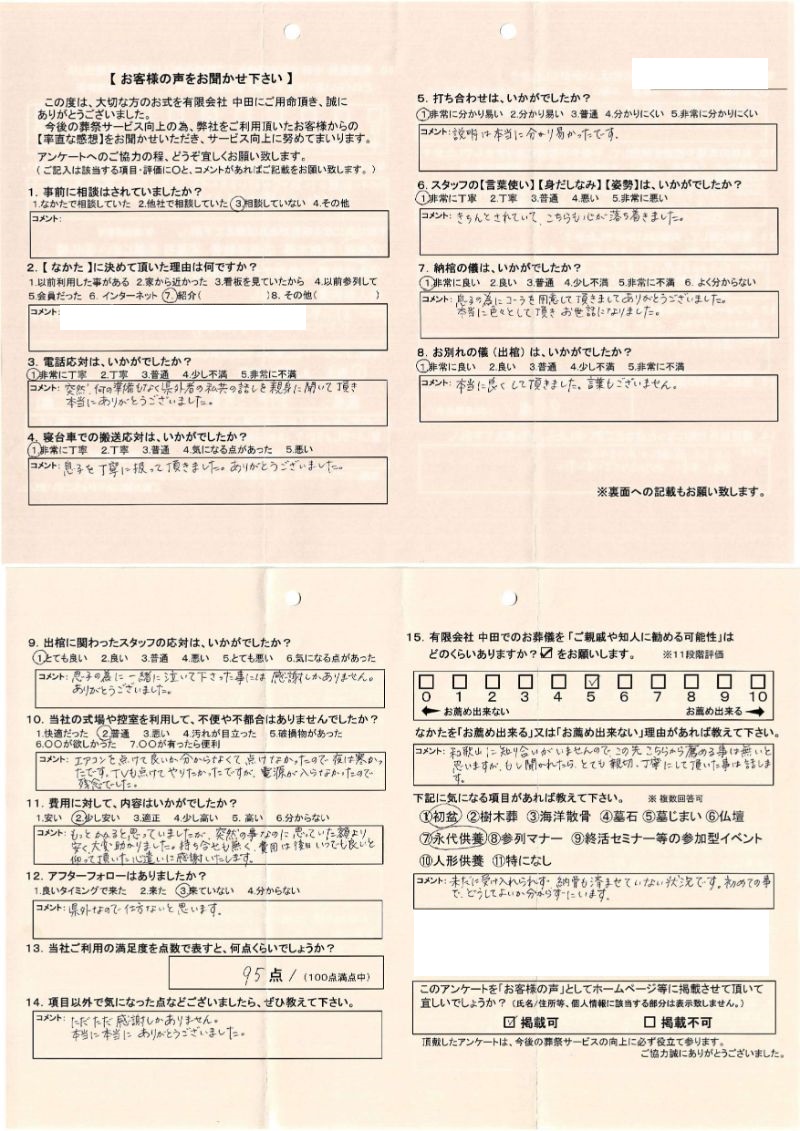 【 お客様の声をお聞かせ下さい 】
この度は、大切な方のお式を有限会社 中田にご用命頂き、誠に
ありがとうございました。
今後の葬祭サービス向上の為、弊社をご利用頂いたお客様からの
【率直な感想】をお聞かせいただき、サービス向上に努めてまいります。
アンケートへのご協力の程、どうぞ宜しくお願い致します。
（ご記入は該当する項目・評価に○と、コメントがあればご記載をお願い致します。）
1. 事前に相談はされていましたか？
1.なかたで相談していた 2.他社で相談していた ③相談していない 4.その他
コメント：
2.【 なかた 】に決めて頂いた理由は何ですか？
1.以前利用した事がある 2.家から近かった 3.看板を見ていたから 4.以前参列して
5.会員だった 6. インターネット ⑦紹介（ ）8. その他（ ）
コメント：
3. 電話応対は、いかがでしたか？
①非常に丁寧 2.丁寧 3.普通 4.少し不満 5.非常に不満
コメント：突然、何の準備もなく県外者の私共の話しを親身に聞いて頂き
本当にありがとうございました。
4. 寝台車での搬送応対は、いかがでしたか？
①非常に丁寧 2.丁寧 3.普通 4.気になる点があった 5.悪い
コメント：息子を丁寧に扱って頂きました。ありがとうございました。
5. 打ち合わせは、いかがでしたか？
①非常に分かり易い 2.分かり易い 3.普通 4.分かりにくい 5.非常に分かりにくい
コメント：説明は本当に分かり易かったです。
6. スタッフの【言葉使い】【身だしなみ】【姿勢】は、いかがでしたか？
①非常に丁寧 2.丁寧 3.普通 4.悪い 5.非常に悪い
コメント：きちんとされていて、こちらも心が落ち着きました。
7. 納棺の儀は、いかがでしたか？
①非常に良い 2.良い 3.普通 4.少し不満 5.非常に不満 6. よく分からない
コメント：息子の為にコーラを用意して頂きましてありがとうございました。
本当に色々として頂きお世話になりました。
8. お別れの儀（出棺）は、いかがでしたか？
①非常に良い 2.良い 3.普通 4.少し不満 5.非常に不満
コメント：本当に良くして頂きました。言葉もございません。
※裏面への記載もお願い致します。
9. 出棺に関わったスタッフの応対は、いかがでしたか？
①とても良い 2.良い 3.普通 4.悪い 5.とても悪い 6.気になる点があった
コメント：息子の為に一緒に泣いて下さった事には感謝しかありません。
ありがとうございました。
10. 当社の式場や控室を利用して、不便や不都合はありませんでしたか？
1.快適だった ②普通 3.悪い 4.汚れが目立った 5.破損物があった
6.○○が欲しかった 7.○○が有ったら便利
コメント：エアコンを点けて良いか分からなくて点けなかったので夜は寒かっ
たです。TVも点けてやりたかったですが、電源が入らなかったので
残念でした。
11. 費用に対して、内容はいかがでしたか？
1.安い ②少し安い 3.適正 4.少し高い 5. 高い 6.分からない
コメント：もっとかかると思っていましたが、突然の事なのに思っていた額より
安く、大変助かりました。持ち合せも無く、費用は後日いつでも良いと
仰って頂いた心遣いに感謝いたします。
12. アフターフォローはありましたか？
1.良いタイミングで来た 2.来た ③来ていない 4.分からない
コメント：県外なので仕方ないと思います。
13. 当社ご利用の満足度を点数で表すと、何点くらいでしょうか？
95点／（100点満点中）
14. 項目以外で気になった点などございましたら、ぜひ教えて下さい。
コメント：ただただ感謝しかありません。
本当に本当にありがとうございました。
15. 有限会社 中田でのお葬儀を「ご親戚や知人に勧める可能性」は
どのくらいありますか？☑をお願いします。 ※11段階評価
0 1 2 3 4 5 6 7 8 9 10
お薦め出来ない お薦め出来る
なかたを「お薦め出来る」又は「お薦め出来ない」理由があれば教えて下さい。
コメント：和歌山に知り合いがいませんので、この先こちらから薦める事は無いと
思いますが、もし聞かれたら、とても親切、丁寧にして頂いた事は話しま
す。
下記に気になる項目があれば教えて下さい。 ※ 複数回答可
①初盆 ②樹木葬 ③海洋散骨 ④墓石 ⑤墓じまい ⑥仏壇
⑦永代供養 ⑧参列マナー ⑨終活セミナー等の参加型イベント
⑩人形供養 ⑪特になし
コメント：未だに受け入れられず、納骨も済ませていない状況です。初めての事
で、どうしてよいか分からずにいます。
このアンケートを「お客様の声」としてホームページ等に掲載させて頂いて
宜しいでしょうか？（氏名/住所等、個人情報に該当する部分は表示致しません。）
☑ 掲載可 □ 掲載不可
頂戴したアンケートは、今後の葬祭サービスの向上に必ず役立て参ります。
ご協力誠にありがとうございました。